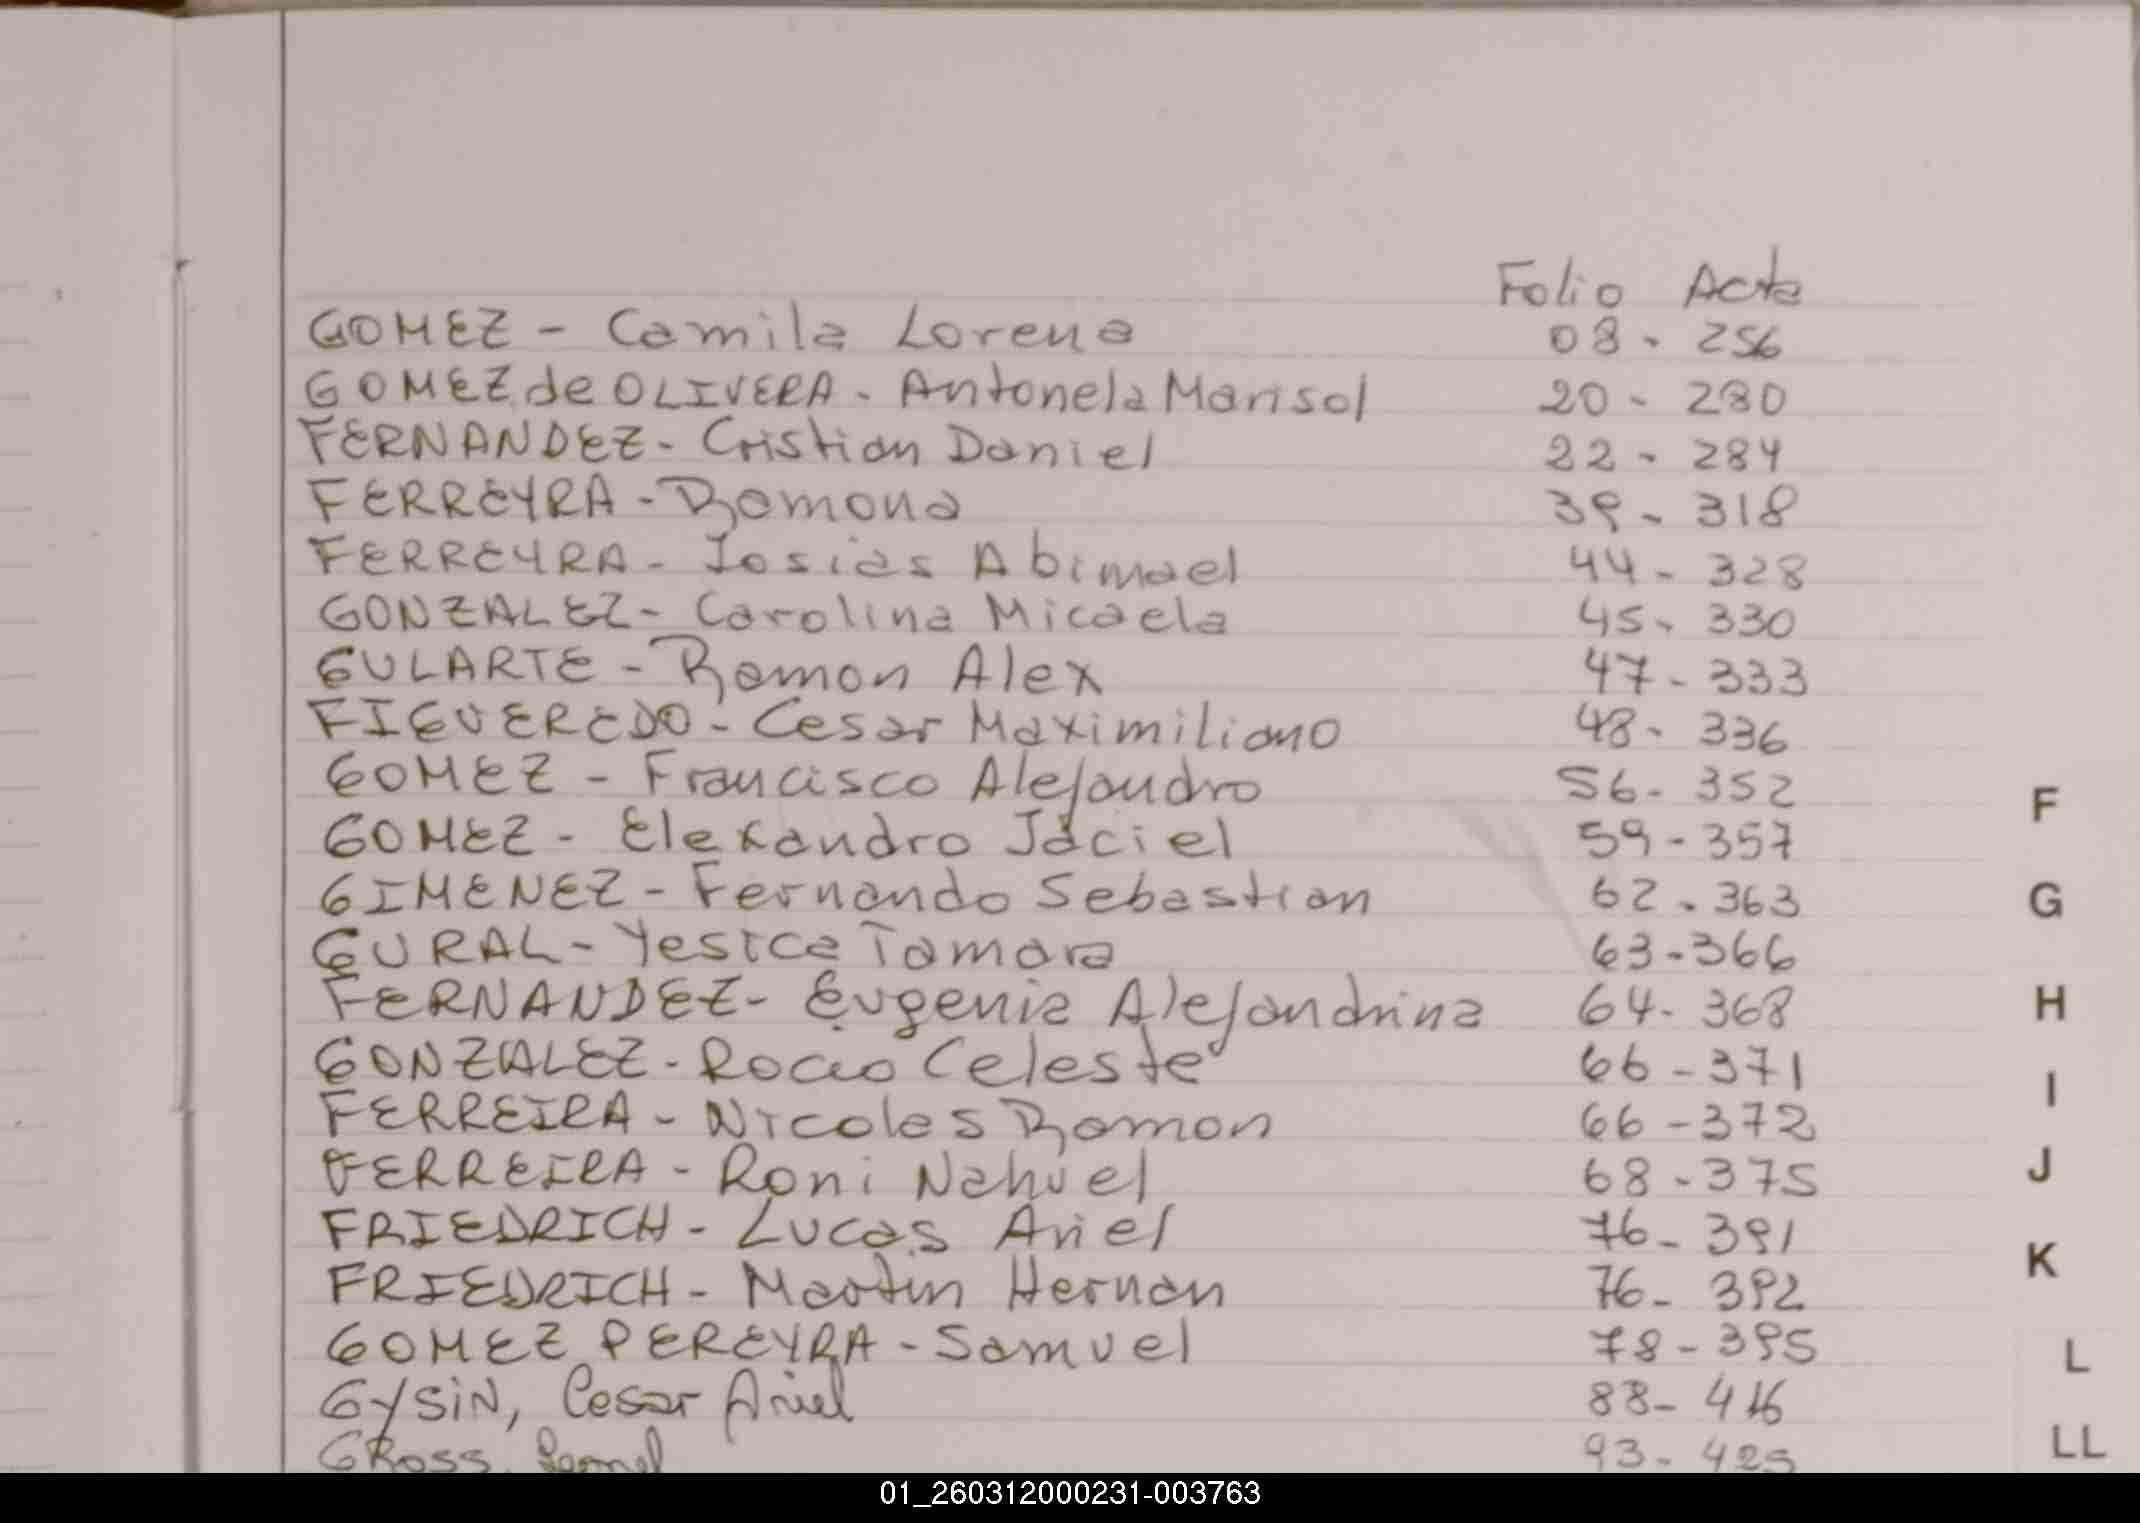 Folio Acta
GOMEZ - Camila Lorena 08 - 256
GOMEZ de OLIVERA - Antonela Marisol 20 - 280
FERNANDEZ - Cristian Daniel 22 - 284
FERREYRA - Ramona 39 - 318
FERREYRA - Josias Abimael 44 - 328
GONZALEZ - Carolina Micaela 45 - 330
GULARTE - Ramon Alex 47 - 333
FIGUEREDO - Cesar Maximiliano 48 - 336
GOMEZ - Francisco Alejandro 56 - 352
GOMEZ - Elexandro Jaciel 59 - 357
GIMENEZ - Fernando Sebastian 62 - 363
GURAL - Yesica Tamara 63 - 366
FERNANDEZ - Eugenia Alejandrina 64 - 368
GONZALEZ - Rocio Celeste 66 - 371
FERREIRA - Nicolas Ramon 66 - 372
FERREIRA - Roni Nahuel 68 - 375
FRIEDRICH - Lucas Ariel 76 - 391
FRIEDRICH - Martin Hernan 76 - 392
GOMEZ PEREYRA - Samuel 78 - 395
GYSIN, Cesar Ariel 88 - 416
GROSS, 93 - 425
F
G
H
I
J
K
L
LL
01_260312000231-003763